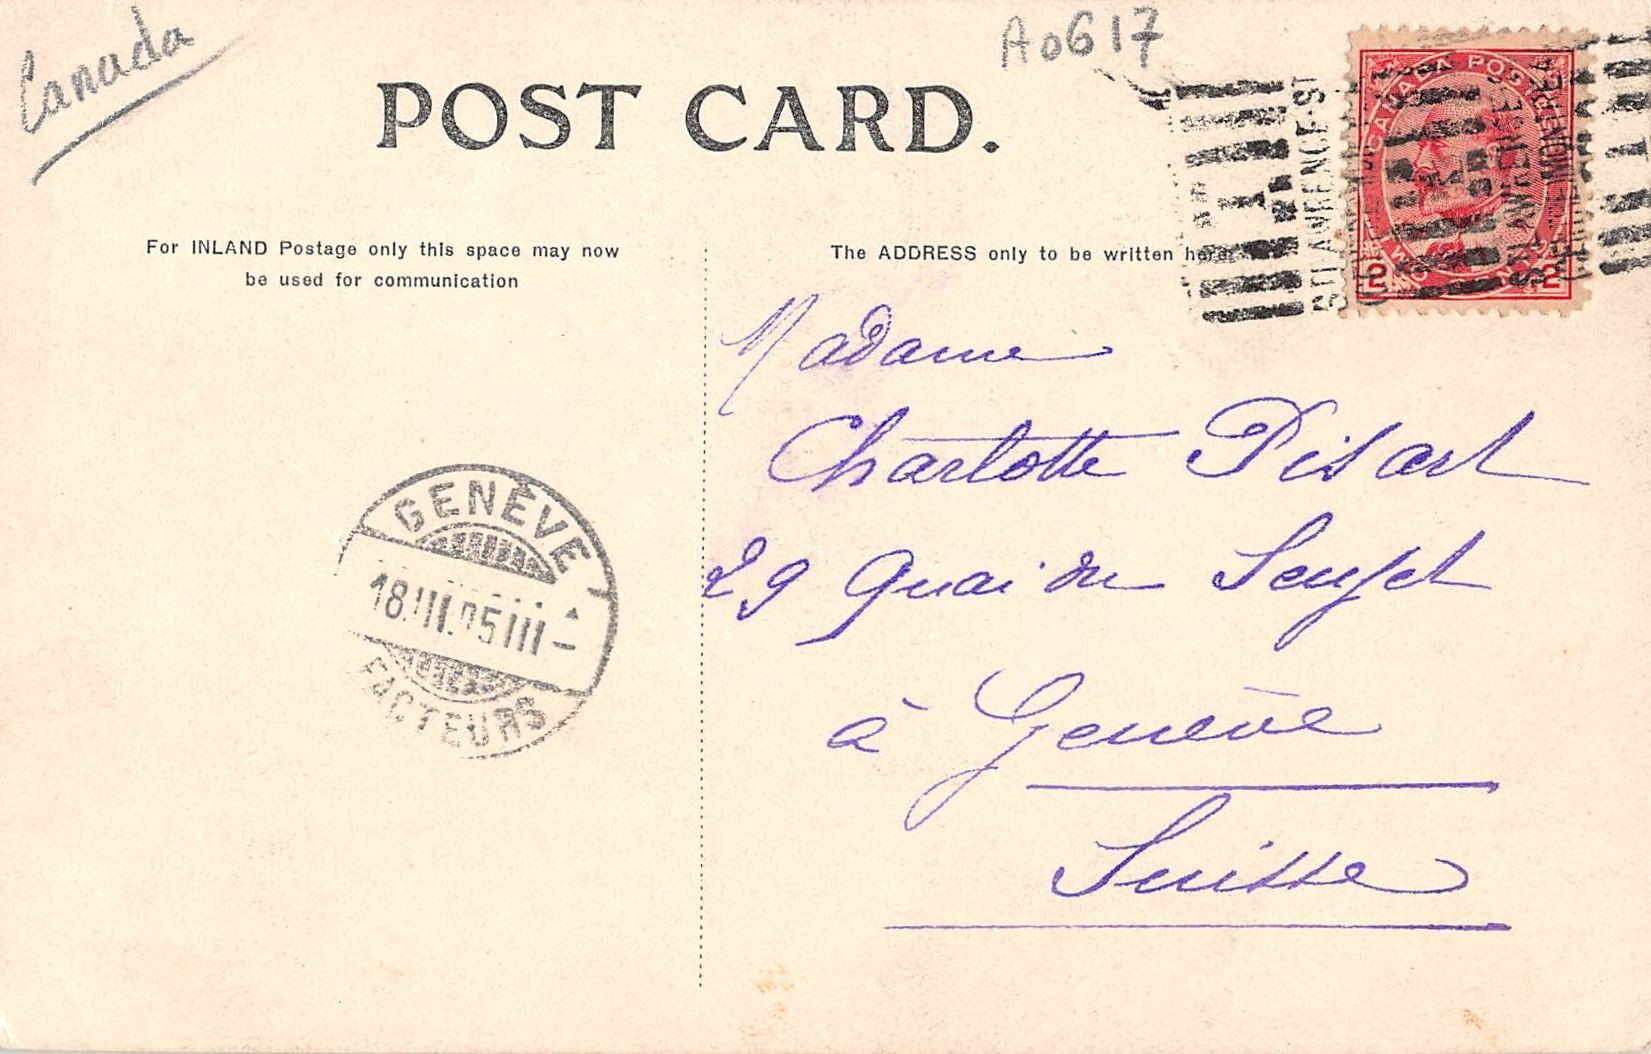 Canada
A0617
POST CARD.
For INLAND Postage only this space may now
be used for communication
The ADDRESS only to be written here.
CANADA POSTAGE
2 2
ST LAWRENCE ST
Madame
Charlotte Pisart
29 Quai du Seujet
à Genève
Suisse
GENÈVE
18.III.05 III –
FACTEURS